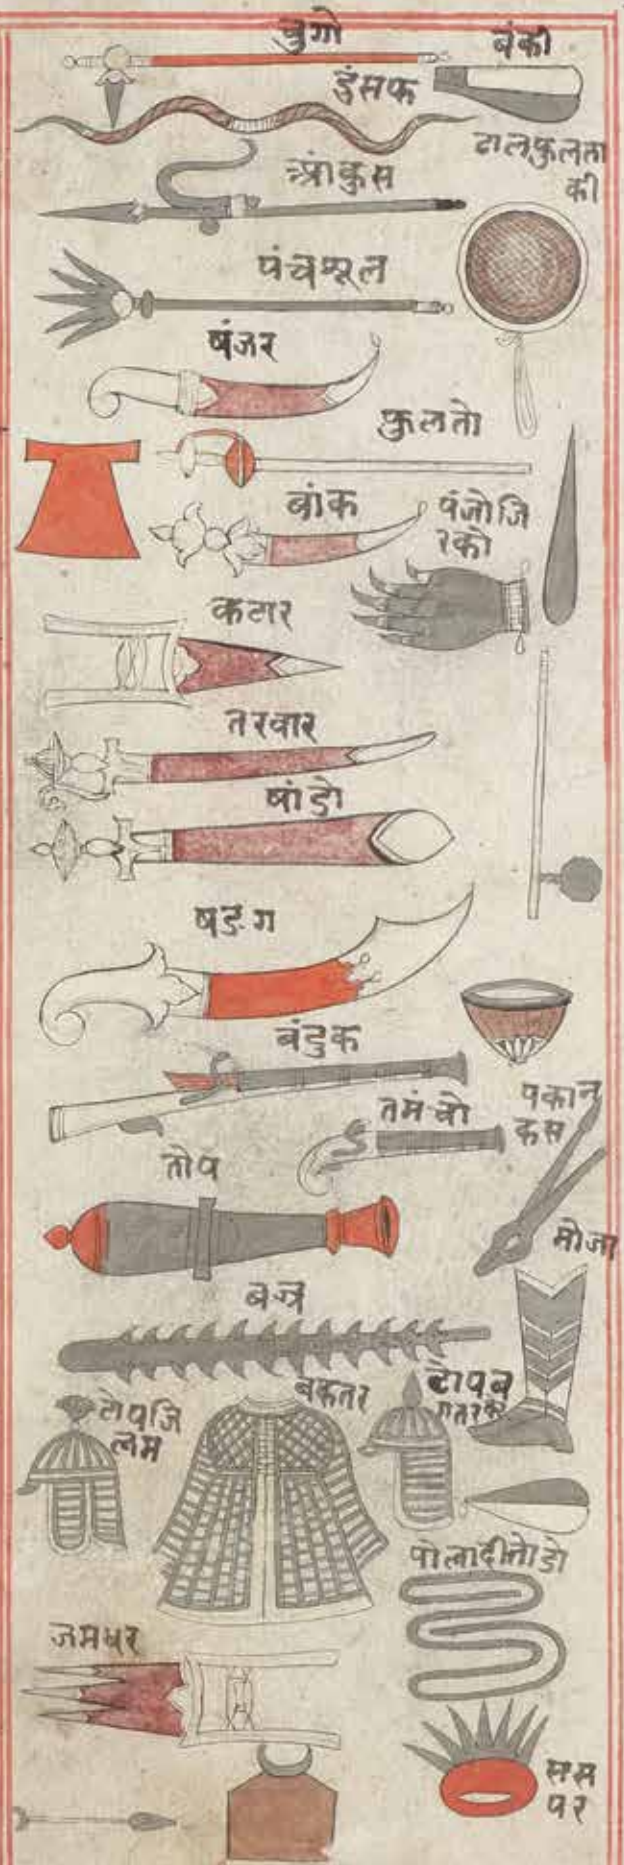 चुगो
बंकी
डुंसफ
ढालफुलता
की
आंकुस
पंचशूल
षंजर
फुलतो
बांक
पंजोजि
रको
कटार
तरवार
षांडो
षडग
बंदुक
तमंचो
पकान
कस
तोप
मोजा
बज्र
टोपजि
लम
बकतर
टोपब
गतरको
पोलादीतोडो
जमधर